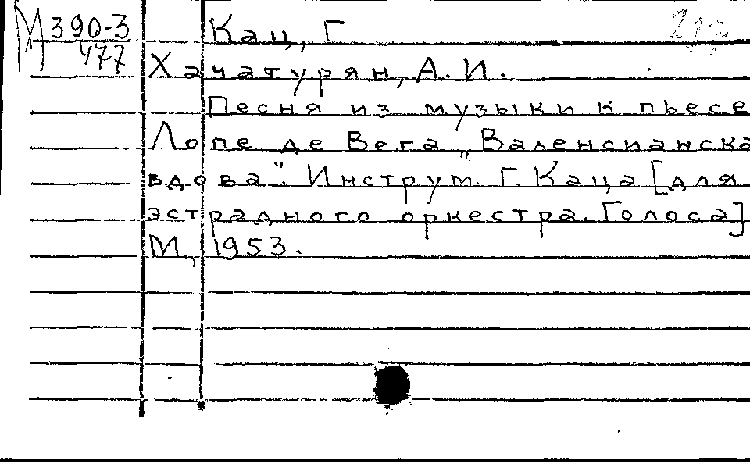 М390-3
477
Кац, Г
Хачатурян, А. И.
Песня из музыки к пьесе
Лопе де Вега „Валенсианска
вдова". Инструм. Г. Каца [для
эстрадного оркестра. Голоса]
М., 1953.